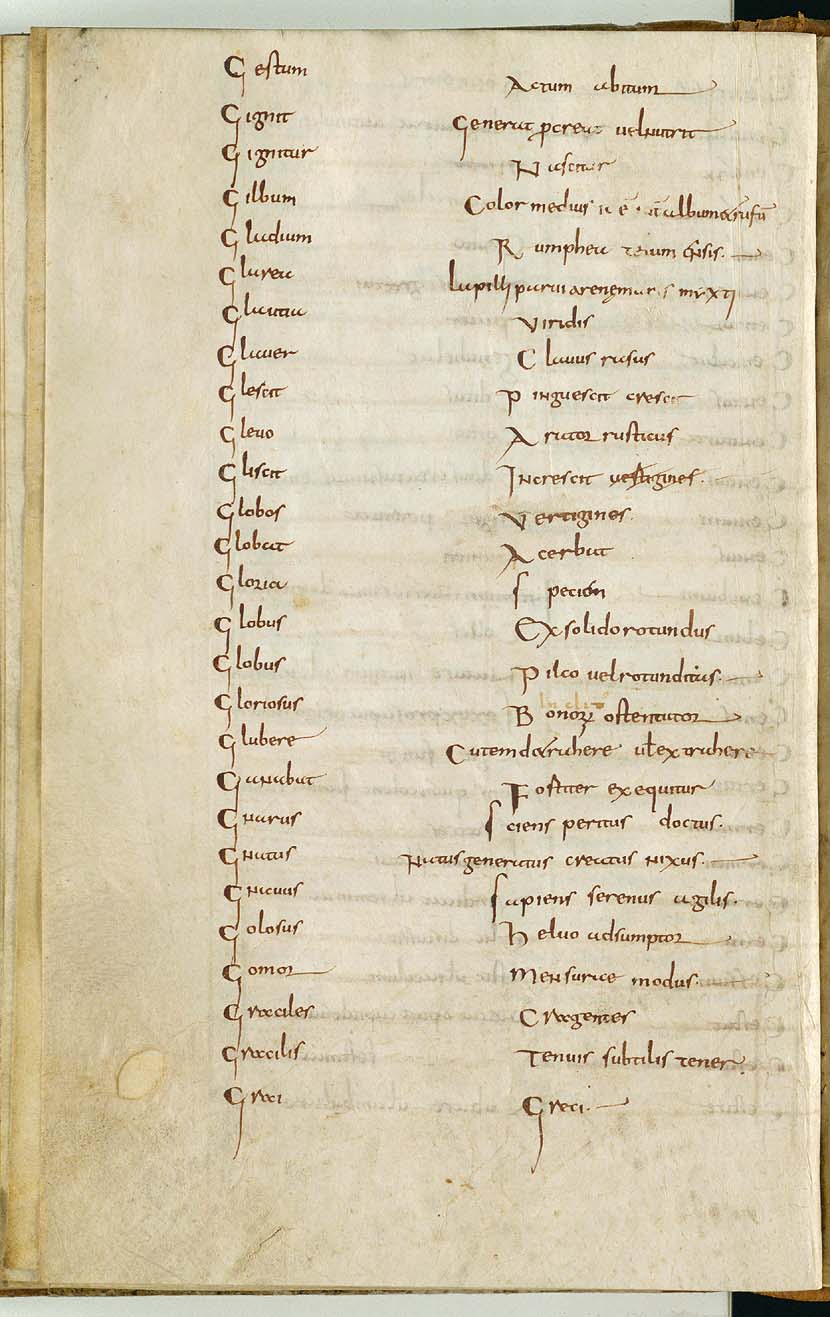 Gestum Actum abitum
Gignit Generat, pcreat vel nutrit
Gignitur Nascitur
Gilbum Color medius
Gladium Rumphea
Glarea lapilli parui arenę maris
Glauca Viridis
Glauer Clauus rasus
Glescit Pinguescit crescit
Gleuo Arator rusticus
Gliscit Increscit uestigines.
Globos Vertigines.
Globat Acerbat
Gloria specion
Globus Ex solido rotundus
Globus Pilco uel rotunditas.
Gloriosus Bonorꝝ ostentator
Glubere Cutem detrahere uł extrahere
Ganabat Fostiter exequitur
Gnarus sciens peritus doctus.
Gnatus Natus generatus creatus nixus.
Gnauus sapiens serenus agilis.
Golosus Heluo adsumptor
Gomor Mensurae modus.
Graciles Cragentes
Gracilis Tenuis subtilis tener.
Graci Greci.